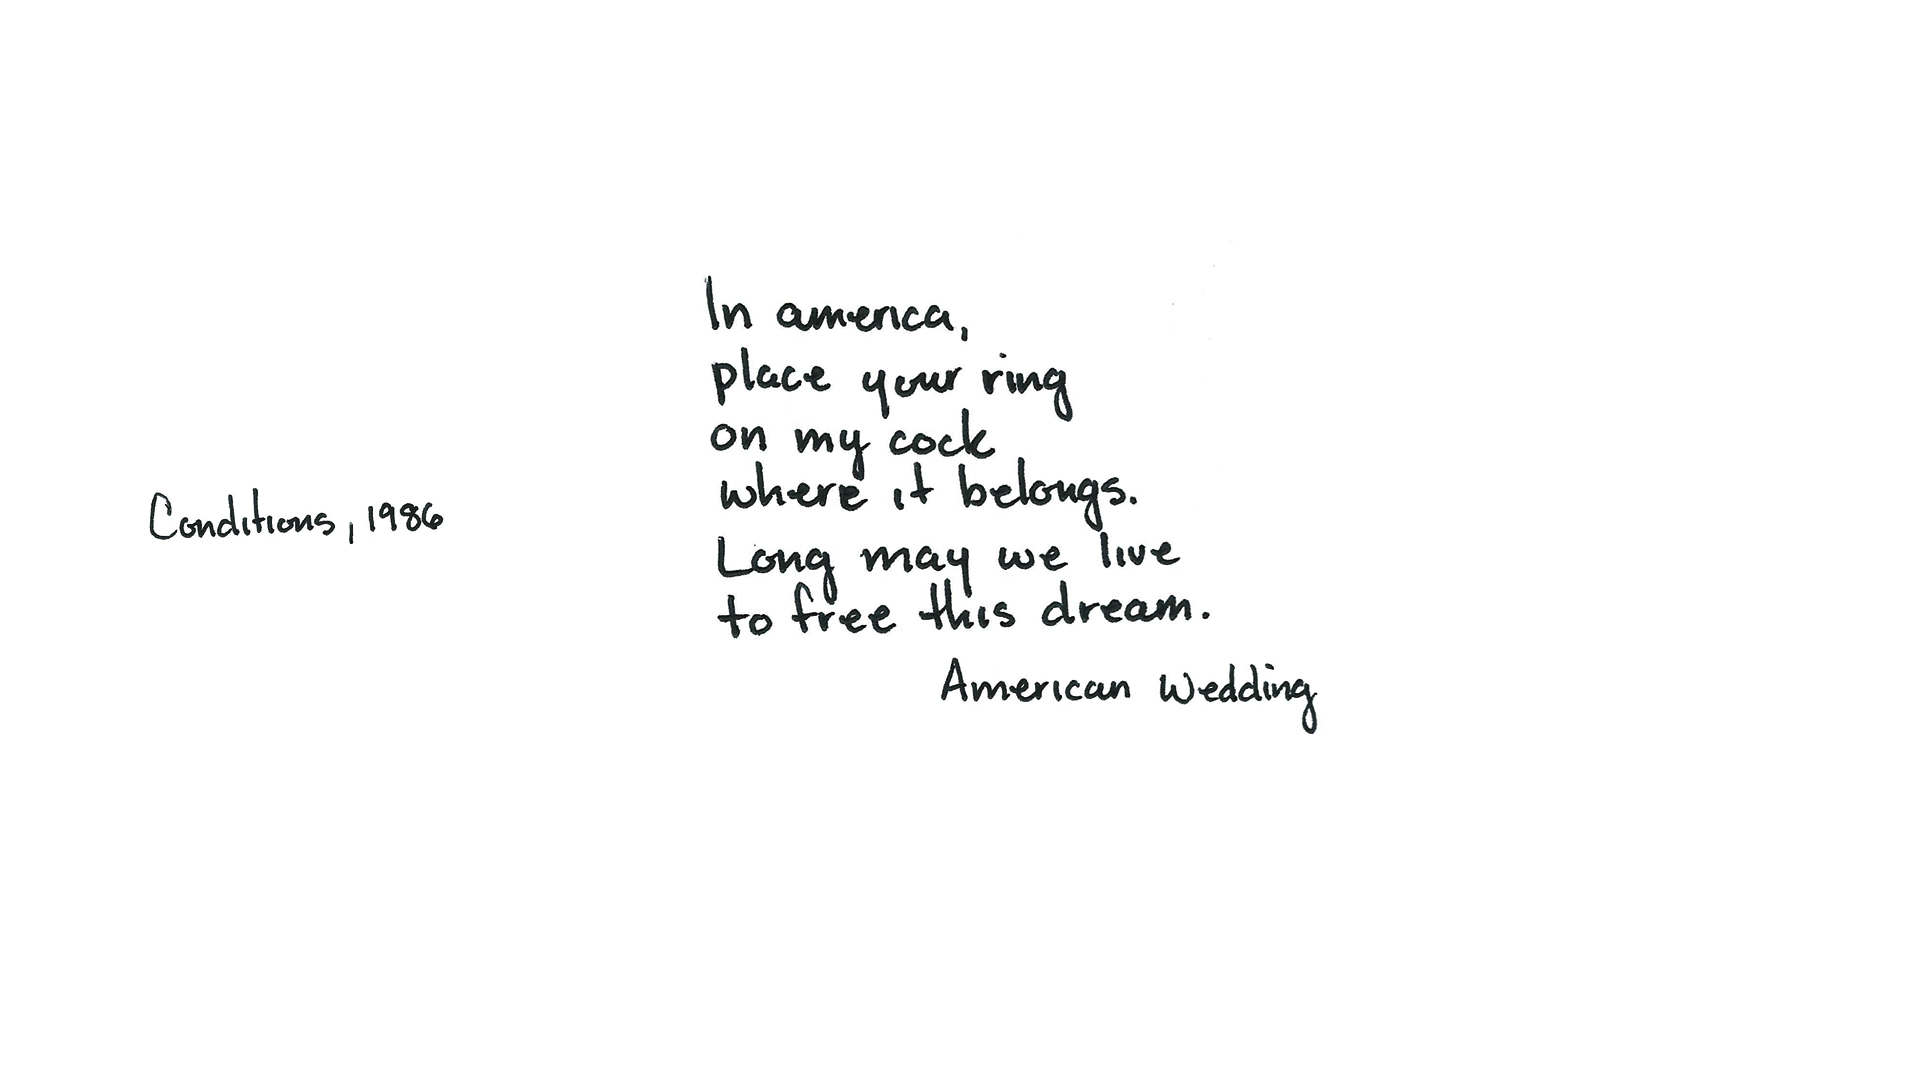 Conditions, 1986
In america,
place your ring
on my cock
where it belongs.
Long may we live
to free this dream.
American Wedding